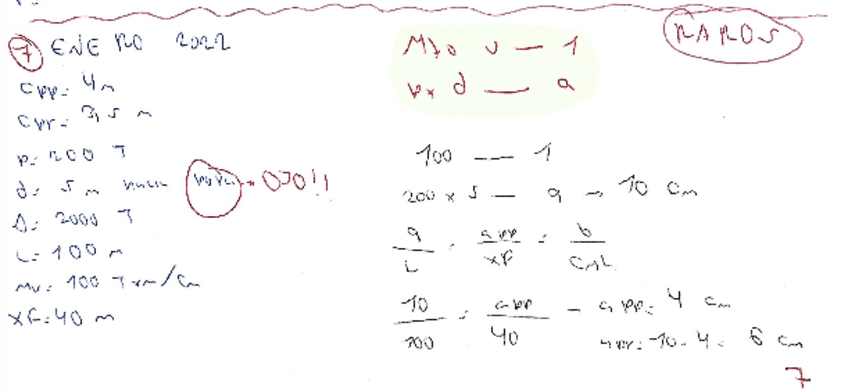 7 ENERO 2022
Cpp = 4 m
Cpr = 3,5 m
p = 200 T
d = 5 m
OJO!!
Δ = 2000 T
L = 100 m
Mu = 100 T x m/cm
XF = 40 m
RAROS
Mto u — 1
p x d — a
100 — 1
200 x 5 — a → 10 cm
a/L = app/XF = b/CmL
10/100 = app/40 - app = 4 cm
apr = 10 - 4 = 6 cm
7